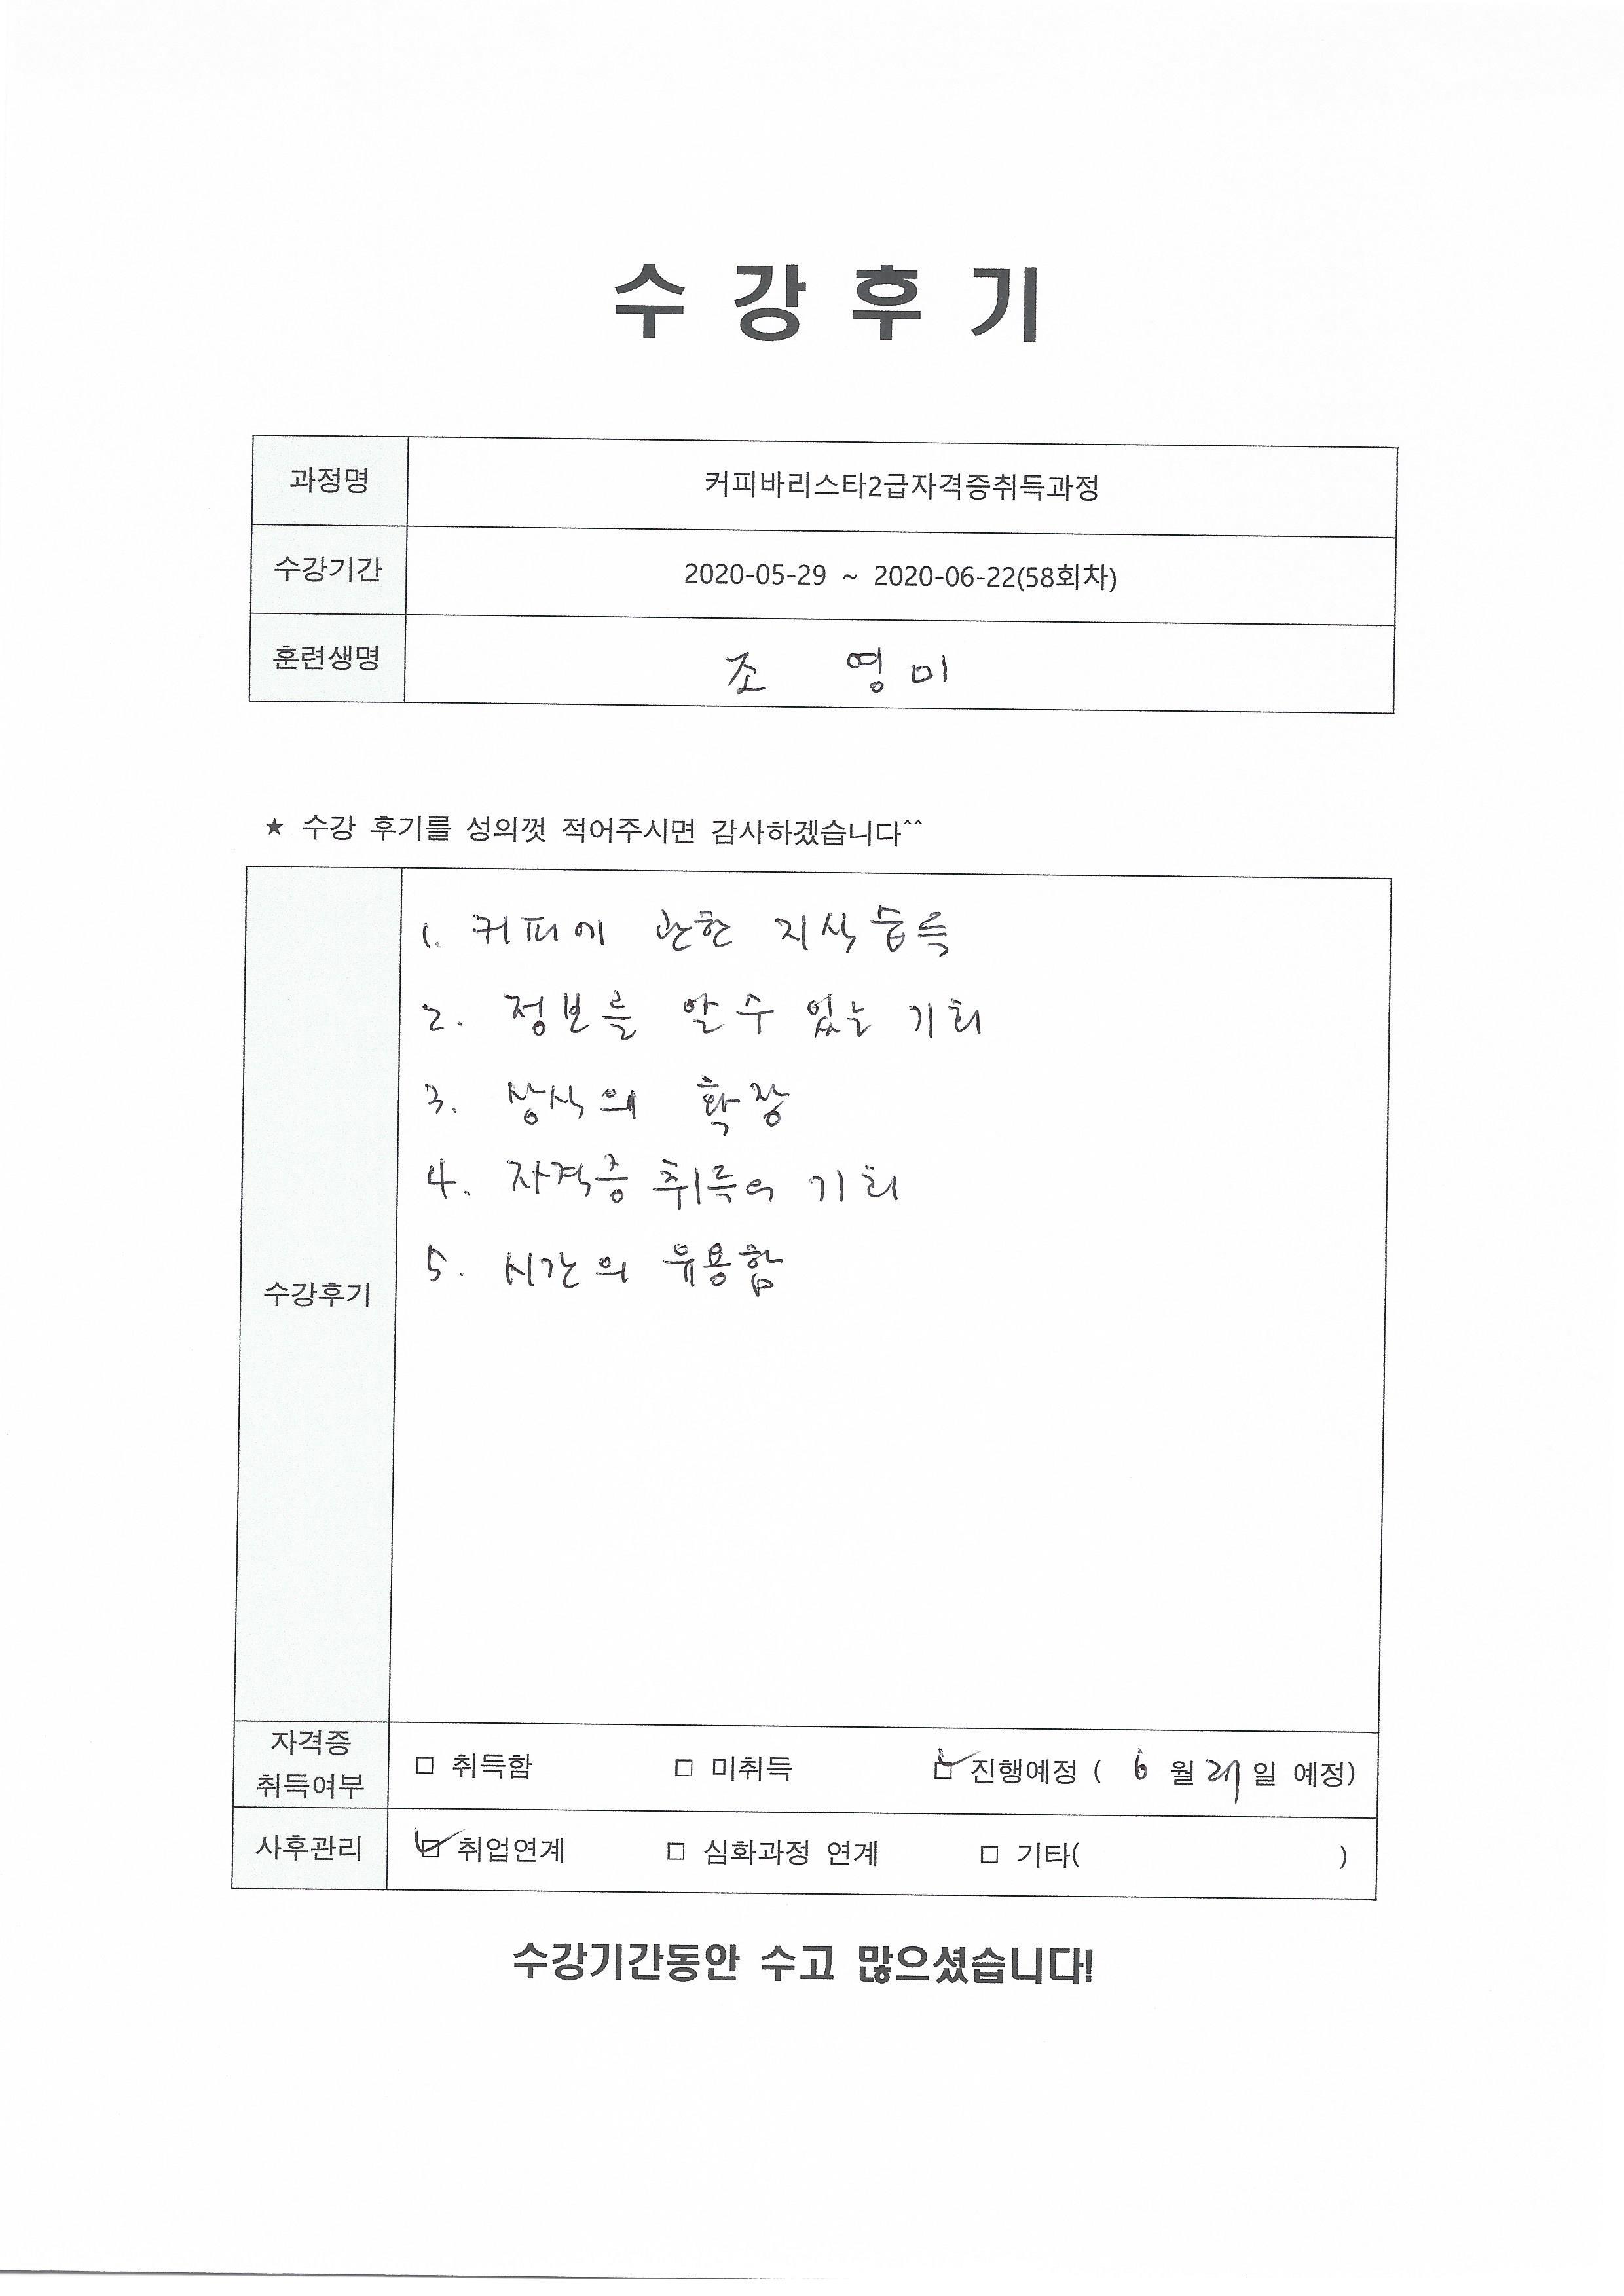 수강후기
과정명 커피바리스타2급자격증취득과정
수강기간 2020-05-29 ~ 2020-06-22(58회차)
훈련생명 조 영미
★ 수강 후기를 성의껏 적어주시면 감사하겠습니다^^
수강후기
1. 커피에 관한 지식습득
2. 정보를 알수 있는 기회
3. 상식의 확장
4. 자격증 취득의 기회
5. 시간의 유용함
자격증
취득여부
□ 취득함 □ 미취득 ☑ 진행예정 ( 6 월 일 예정)
사후관리 ☑ 취업연계 □ 심화과정 연계 □ 기타( )
수강기간동안 수고 많으셨습니다!